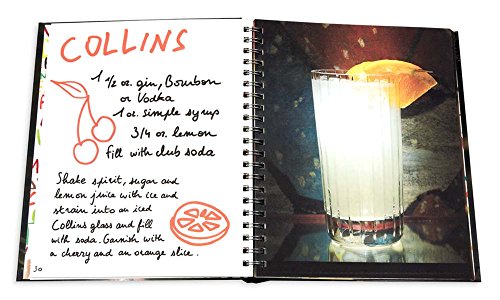 COLLINS
1 1/2 oz. gin, Bourbon
or Vodka
1 oz. simple syrup
3/4 oz. lemon
fill with club soda
Shake spirit, sugar and
lemon juice with ice and
strain into an iced
Collins glass and fill
with soda. Garnish with
a cherry and an orange slice.
30